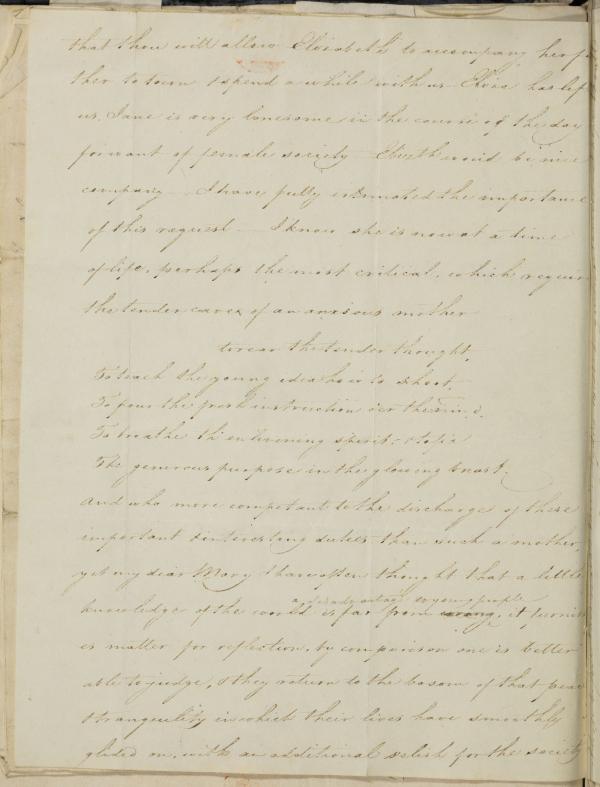 that thou will allow Elizabeth to accompany her fa
ther to town & spend a while with us Eliza has left
us, Jane is very lonesome in the course of the day
for want of female society Elizth would be nice
company — I have fully estimated the importance
of this request — I know she is now at a time
of life, perhaps the most critical, which requires
the tender cares of an anxious mother
to rear the tender thought,
To teach the young idea how to shoot,
To pour the fresh instruction o'er the mind,
To breathe th' enlivening spirit, & to fix
The generous purpose in the glowing breast.
and who more competant to the discharge of these
important & interesting duties than such a mother,
yet my dear Mary I have often thought that a little
a disadvantage to young people
knowledge of the world is far from wrong, it furnish
es matter for reflection, by comparison one is better
able to judge, & they return to the bosom of that peace
& tranquility in which their lives have smoothly
glided on, with an additional relish for the society